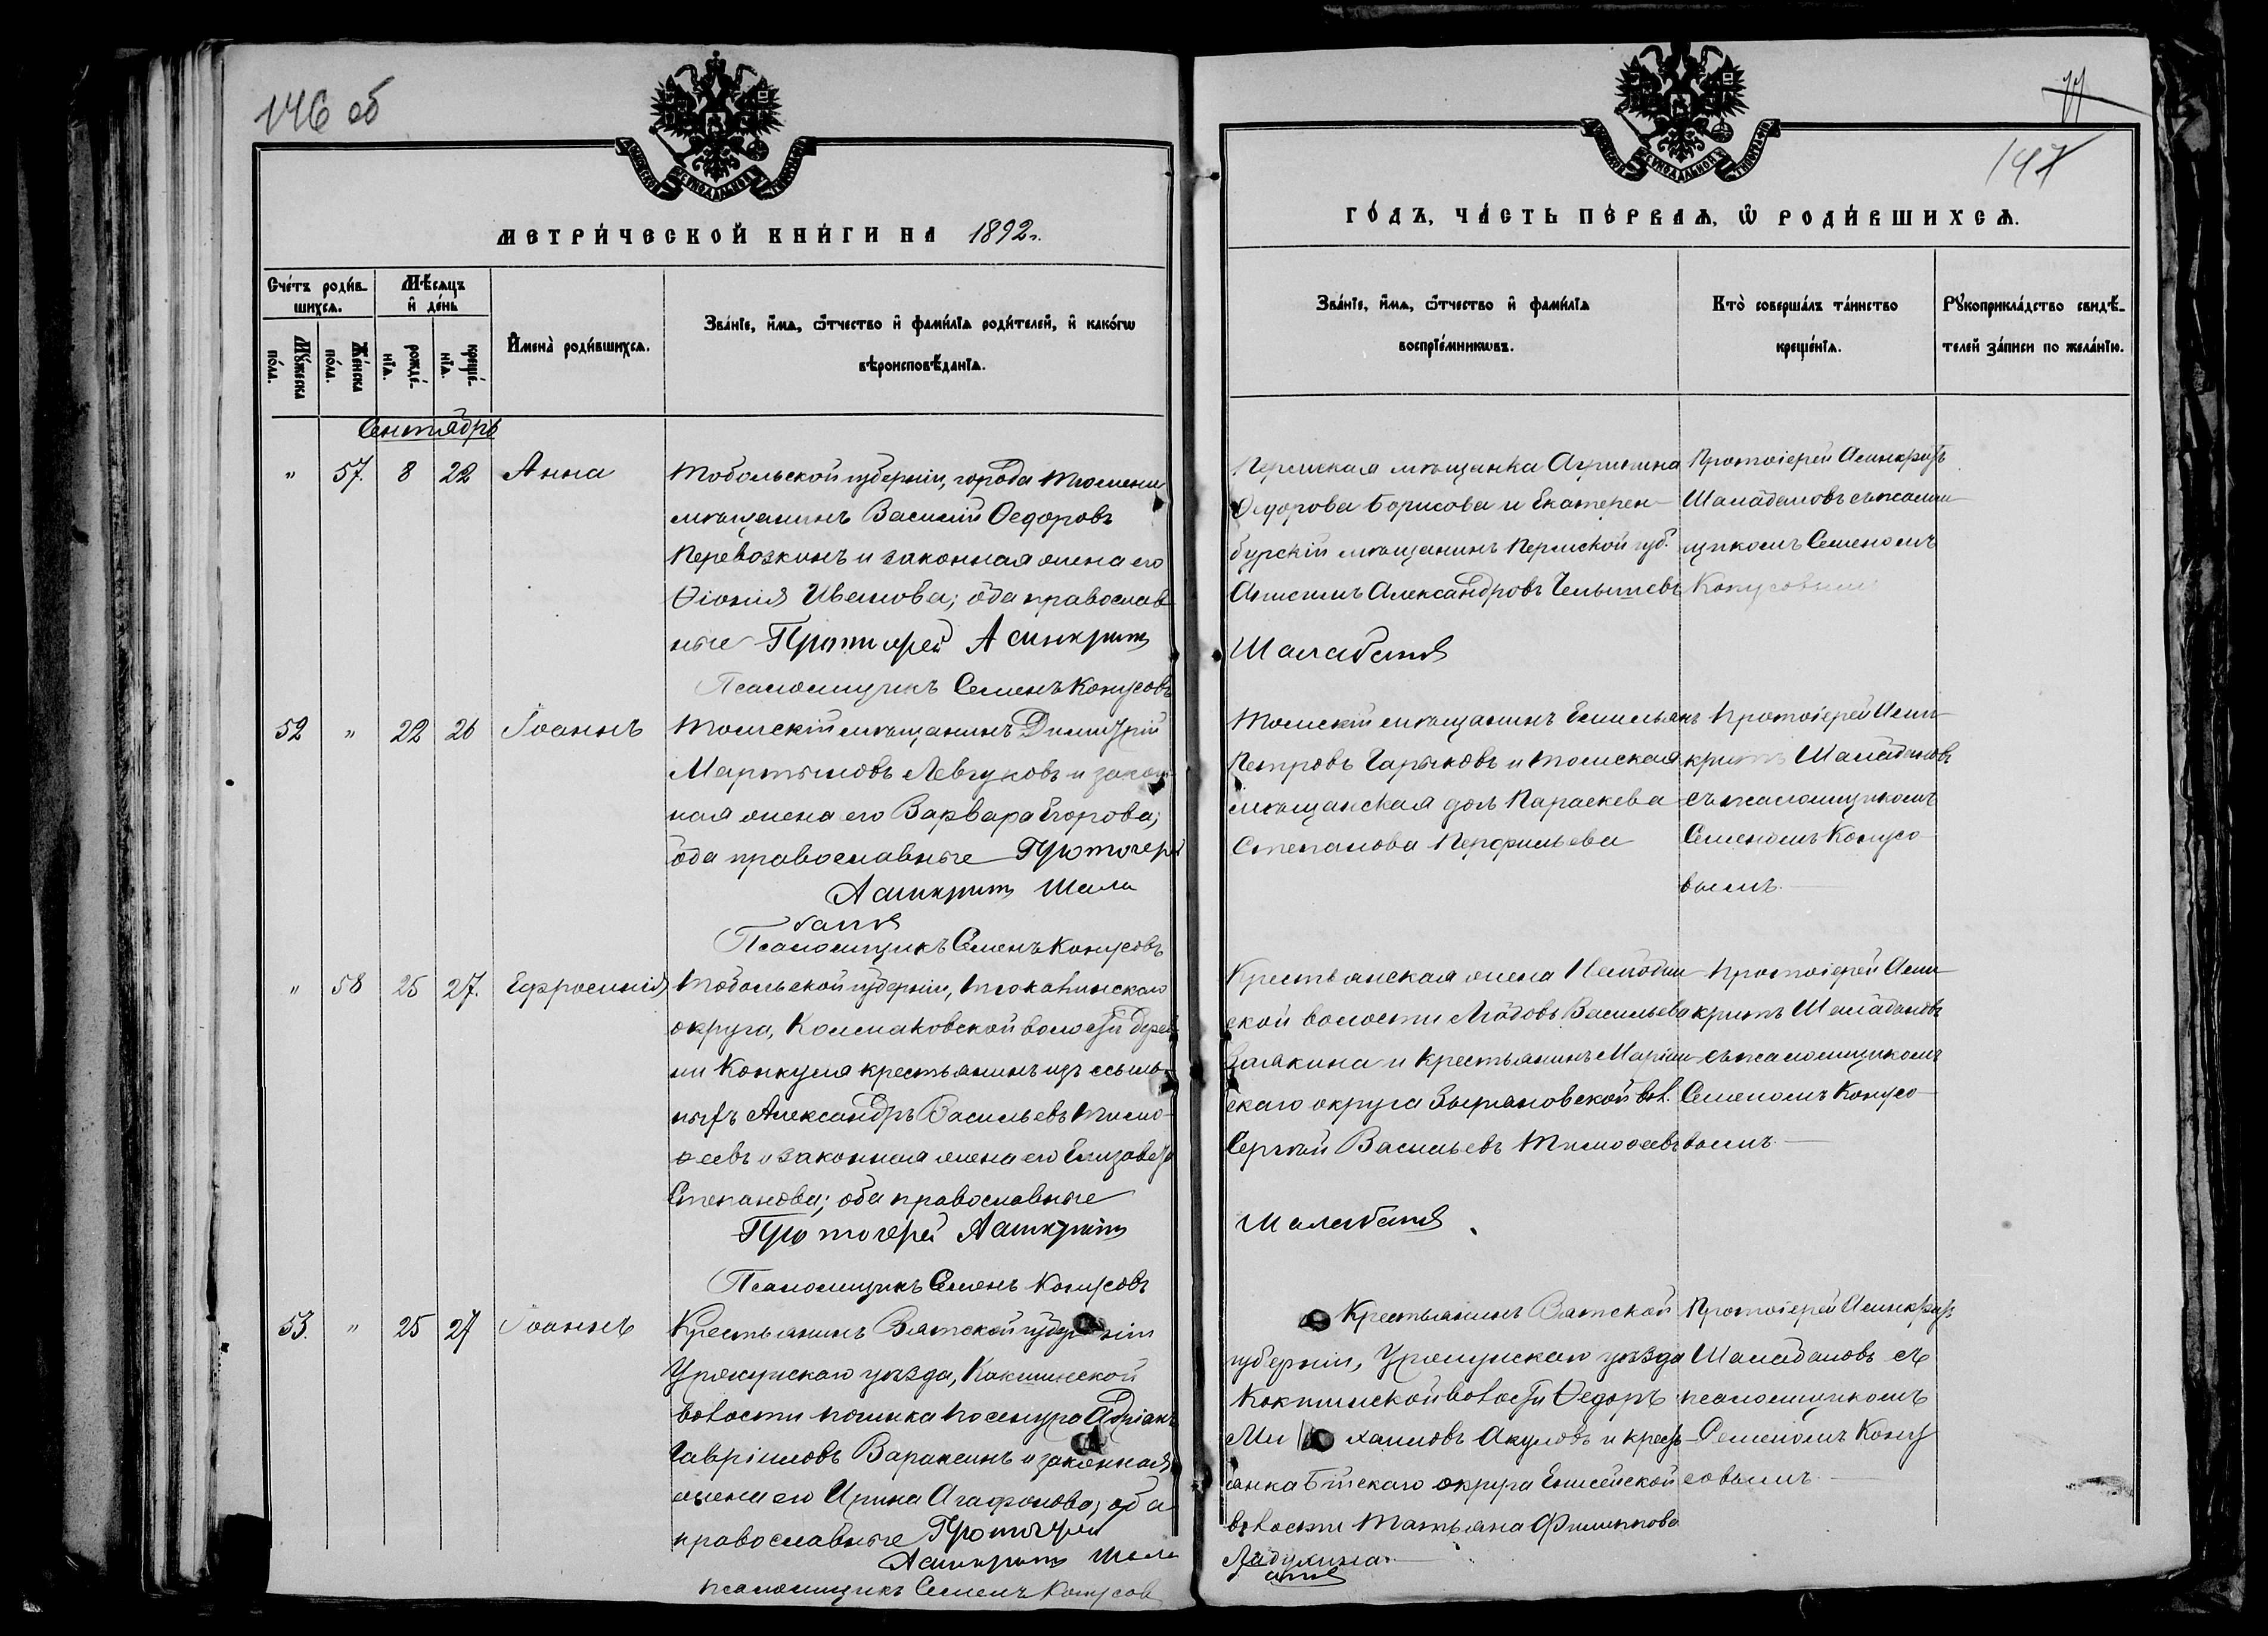 146 об
МЕТРИ́ЧЕСКОЙ КНИ́ГИ НА 1892 г.
Сче́тъ роди́в-
шихсѧ.
Мѣ́сѧцъ
и҆ де́нь
Мꙋ́жеска
по́ла.
Же́нска
по́ла.
рожде́-
нїѧ.
креще́-
нїѧ.
И҆мена̀ роди́вшихсѧ.
Зва́нїе, и҆́мѧ, ѻ҆́тчество и҆ фами́лїѧ роди́телей, и҆ како́гѡ
вѣроисповѣ́данїѧ.
Сентябрь
" 57. 8 22 Анна
Тобольской губерніи, города Тюмени
мѣщанинъ Василій Ѳедоровъ
Перевозкинъ и законная жена его
Ѳіонія Иванова; оба православ-
ные Протоіерей Асинкритъ
Псаломщикъ Семенъ Конусовъ
52 " 22 26 Іоаннъ
Томскій мѣщанинъ Димитрій
Мартыновъ Левчуковъ и закон-
ная жена его Варвара Егорова;
оба православные Протоіерей
Асинкритъ Шала
бановъ
Псаломщикъ Семенъ Конусовъ
" 58 25 27. Ефросинія
Тобольской губерніи, Тюкалинскаго
округа, Колмаковской волости дерев-
ни Конкуля крестьянинъ изъ ссыль-
ныхъ Александръ Васильевъ Тимо-
ѳеевъ и законная жена его Елизавета
Степанова; оба православные
Протоіерей Асинкритъ
Псаломщикъ Семенъ Конусовъ
53. " 25 27 Іоаннъ
Крестьянинъ Вятской губерніи
Уржумскаго уѣзда, Кокшинской
волости починка Адріанъ
Гавріиловъ Вараксинъ и законная
жена его Ирина Агафонова; оба
православные Протоіерей
Асинкритъ Шала
псаломщикъ Семенъ Конусовъ
147
ГО́ДЪ, ЧА́СТЬ ПЕ́РВАѦ, Ѡ҆ РОДИ́ВШИХСѦ.
Зва́нїе, и҆́мѧ, ѻ҆́тчество и҆ фами́лїѧ
воспрїе́мникѡвъ.
Кто̀ соверша́лъ та́инство
креще́нїѧ.
Рꙋкоприкла́дство свидѣ́-
телей за́писи по жела́нїю.
Пермская мѣщанка Агрипина
Ѳедорова Борисова и Екатерен-
бурскій мѣщанинъ Пермской губ.
Анисимъ Александровъ Челышевъ
Протоіерей Асинкритъ
Шалабановъ съ псалом-
щикомъ Семеномъ
Конусовымъ
Шалабановъ
Томскій мѣщанинъ Емильянъ
Петровъ Гарыковъ и томская
мѣщанская дочь Параскева
Степанова Перфильева
Протоіерей Асин-
критъ Шалабановъ
съ псаломщикомъ
Семеномъ Конусо-
вымъ.
Крестьянская жена
ской волости Любовь Васильева
и крестьянинъ Маріин-
скаго округа Зыряновской вол.
Сергѣй Васильевъ Тимоѳеевъ
Протоіерей Асин-
критъ Шалабановъ
съ псаломщикомъ
Семеномъ Конусо-
вымъ.
Шалабановъ
Крестьянинъ Вятской
губерніи, Уржумскаго уѣзда
Кокшинской волости Ѳедоръ
Михаиловъ Акуловъ и кресть-
янка Бійскаго округа Енисейской
волости Татьяна Филиппова
Ладукина.
Протоіерей Асинкритъ
Шалабановъ съ
псаломщикомъ
Семеномъ Кону-
совымъ.